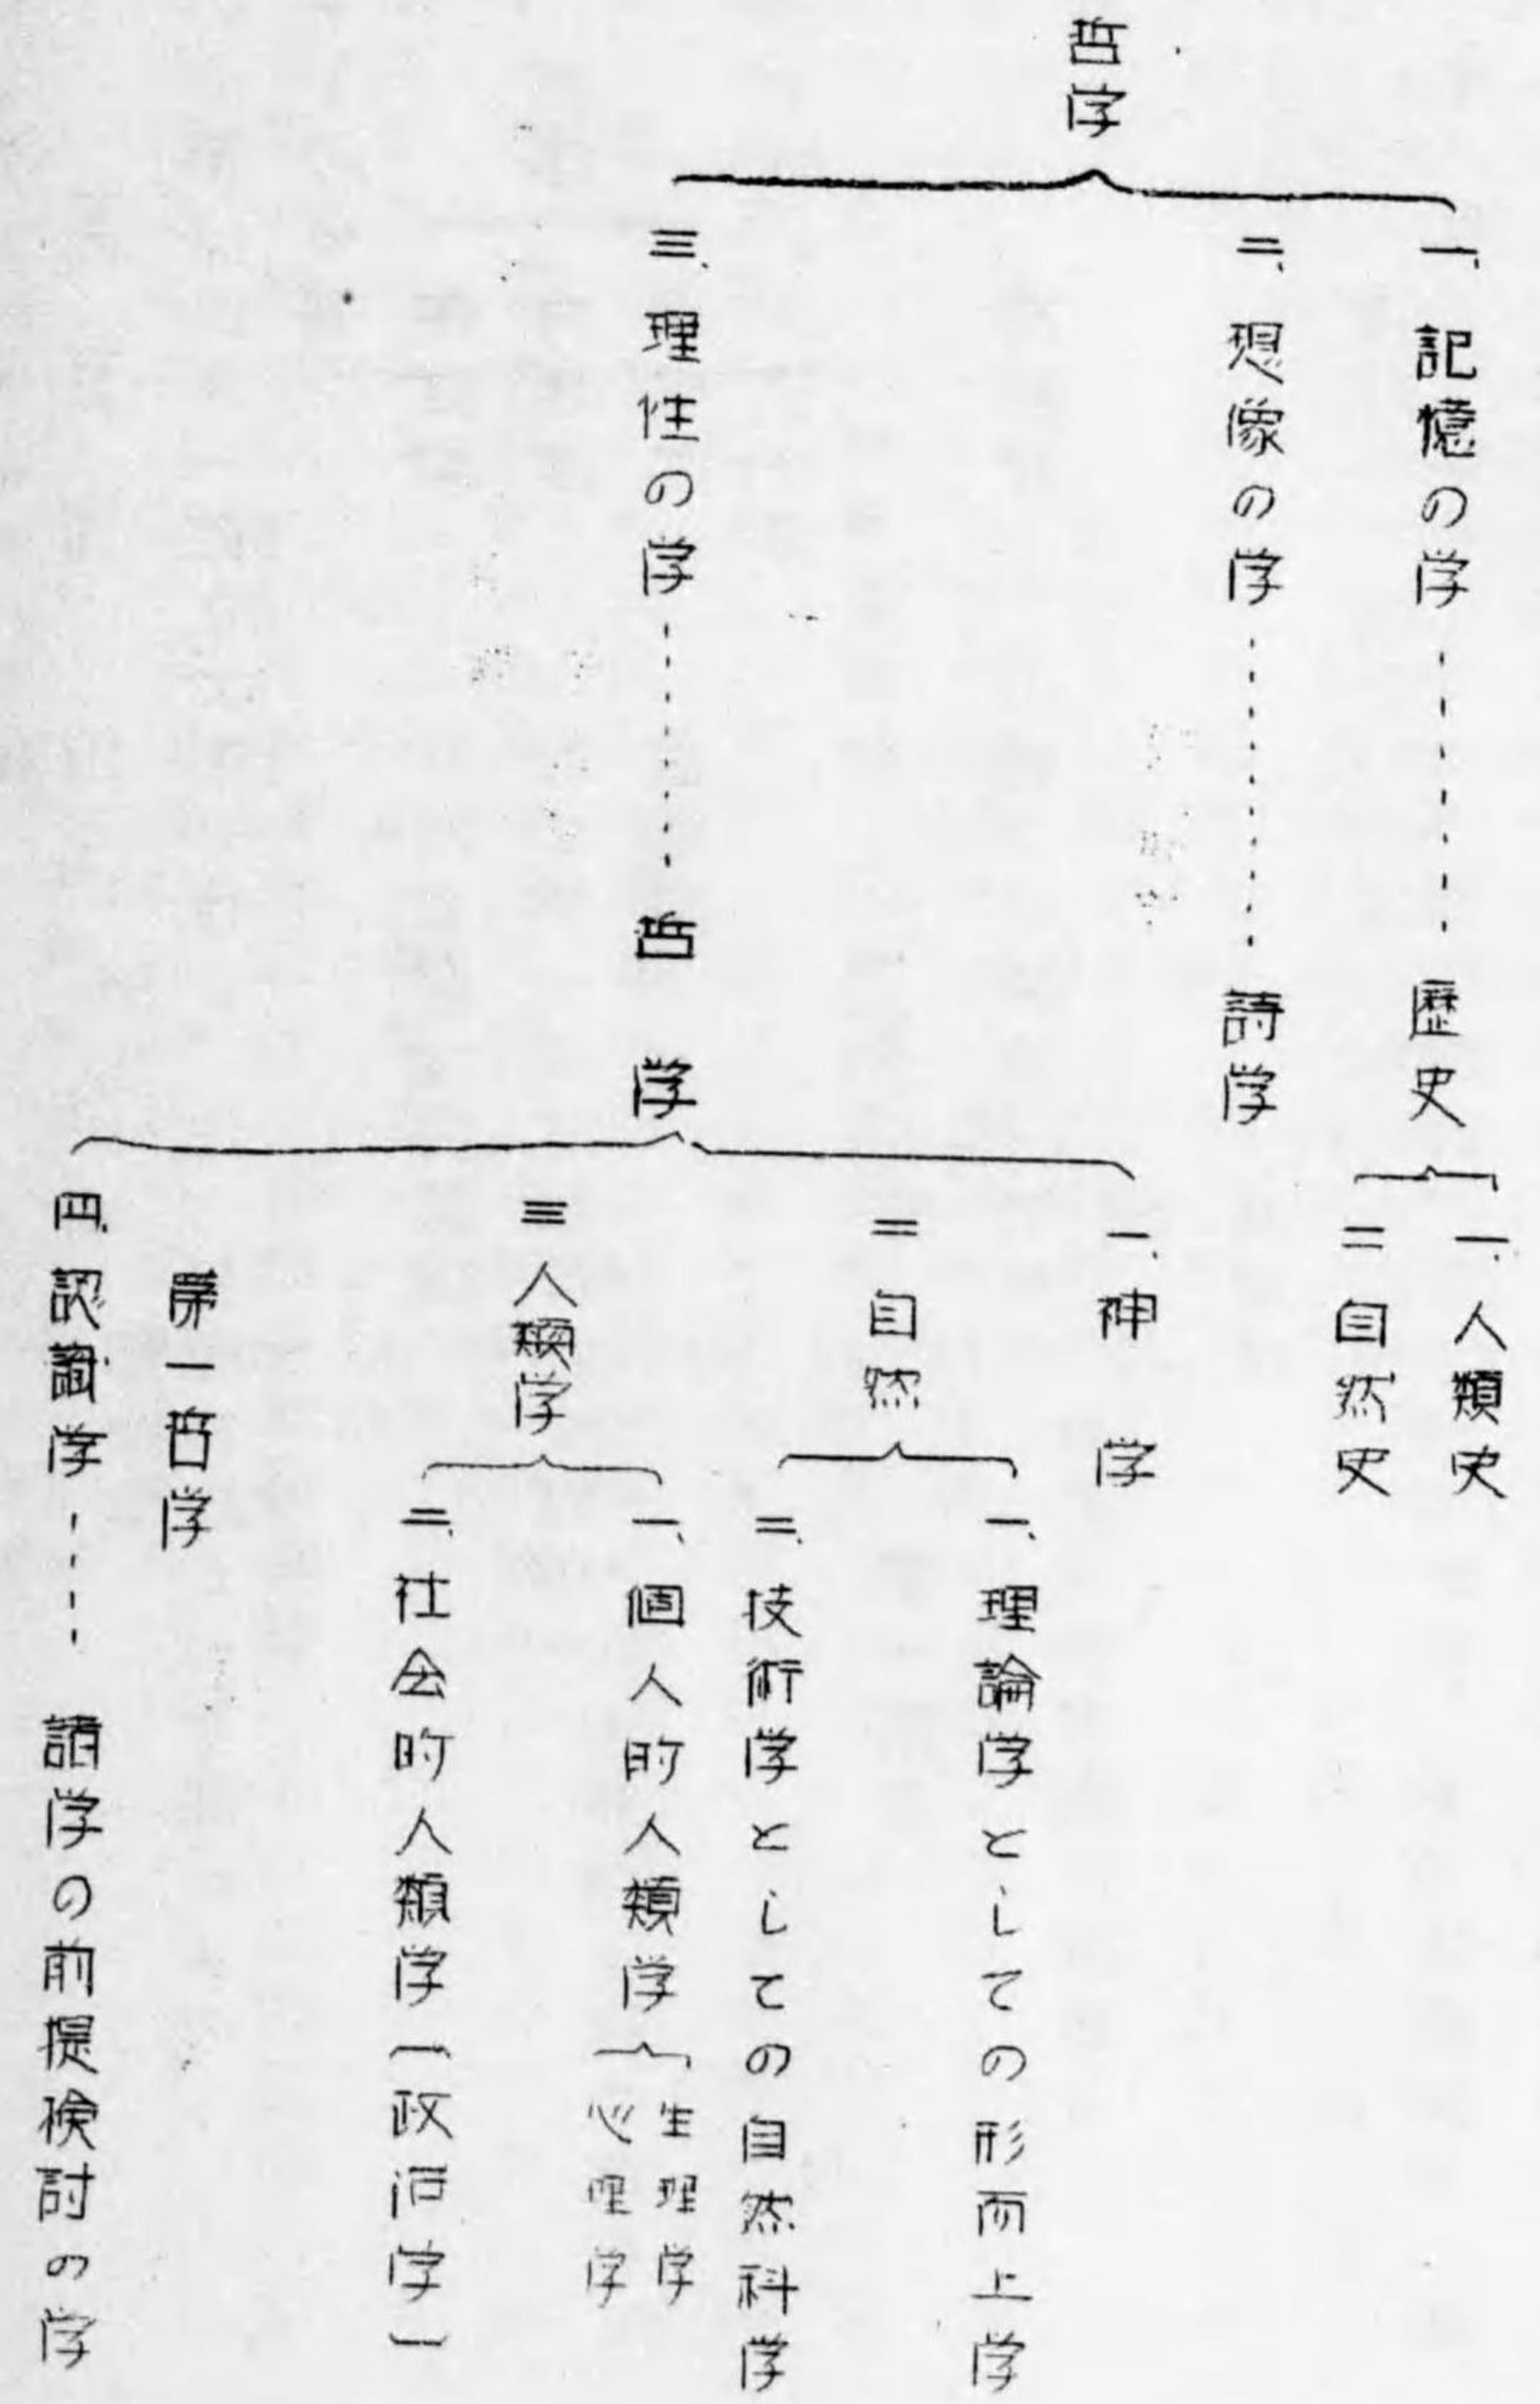 哲学
一、記憶の学………歴史
一、人類史
二自然史
二、想像の学………詩学
三、理性の学………哲学
一、神学
二自然
一、理論学としての形而上学
二、技術学としての自然科学
三人類学
一、個人的人類学
生理学
心理学
二、社会的人類学(政治学)
第一哲学
四、認識学……諸学の前提検討の学